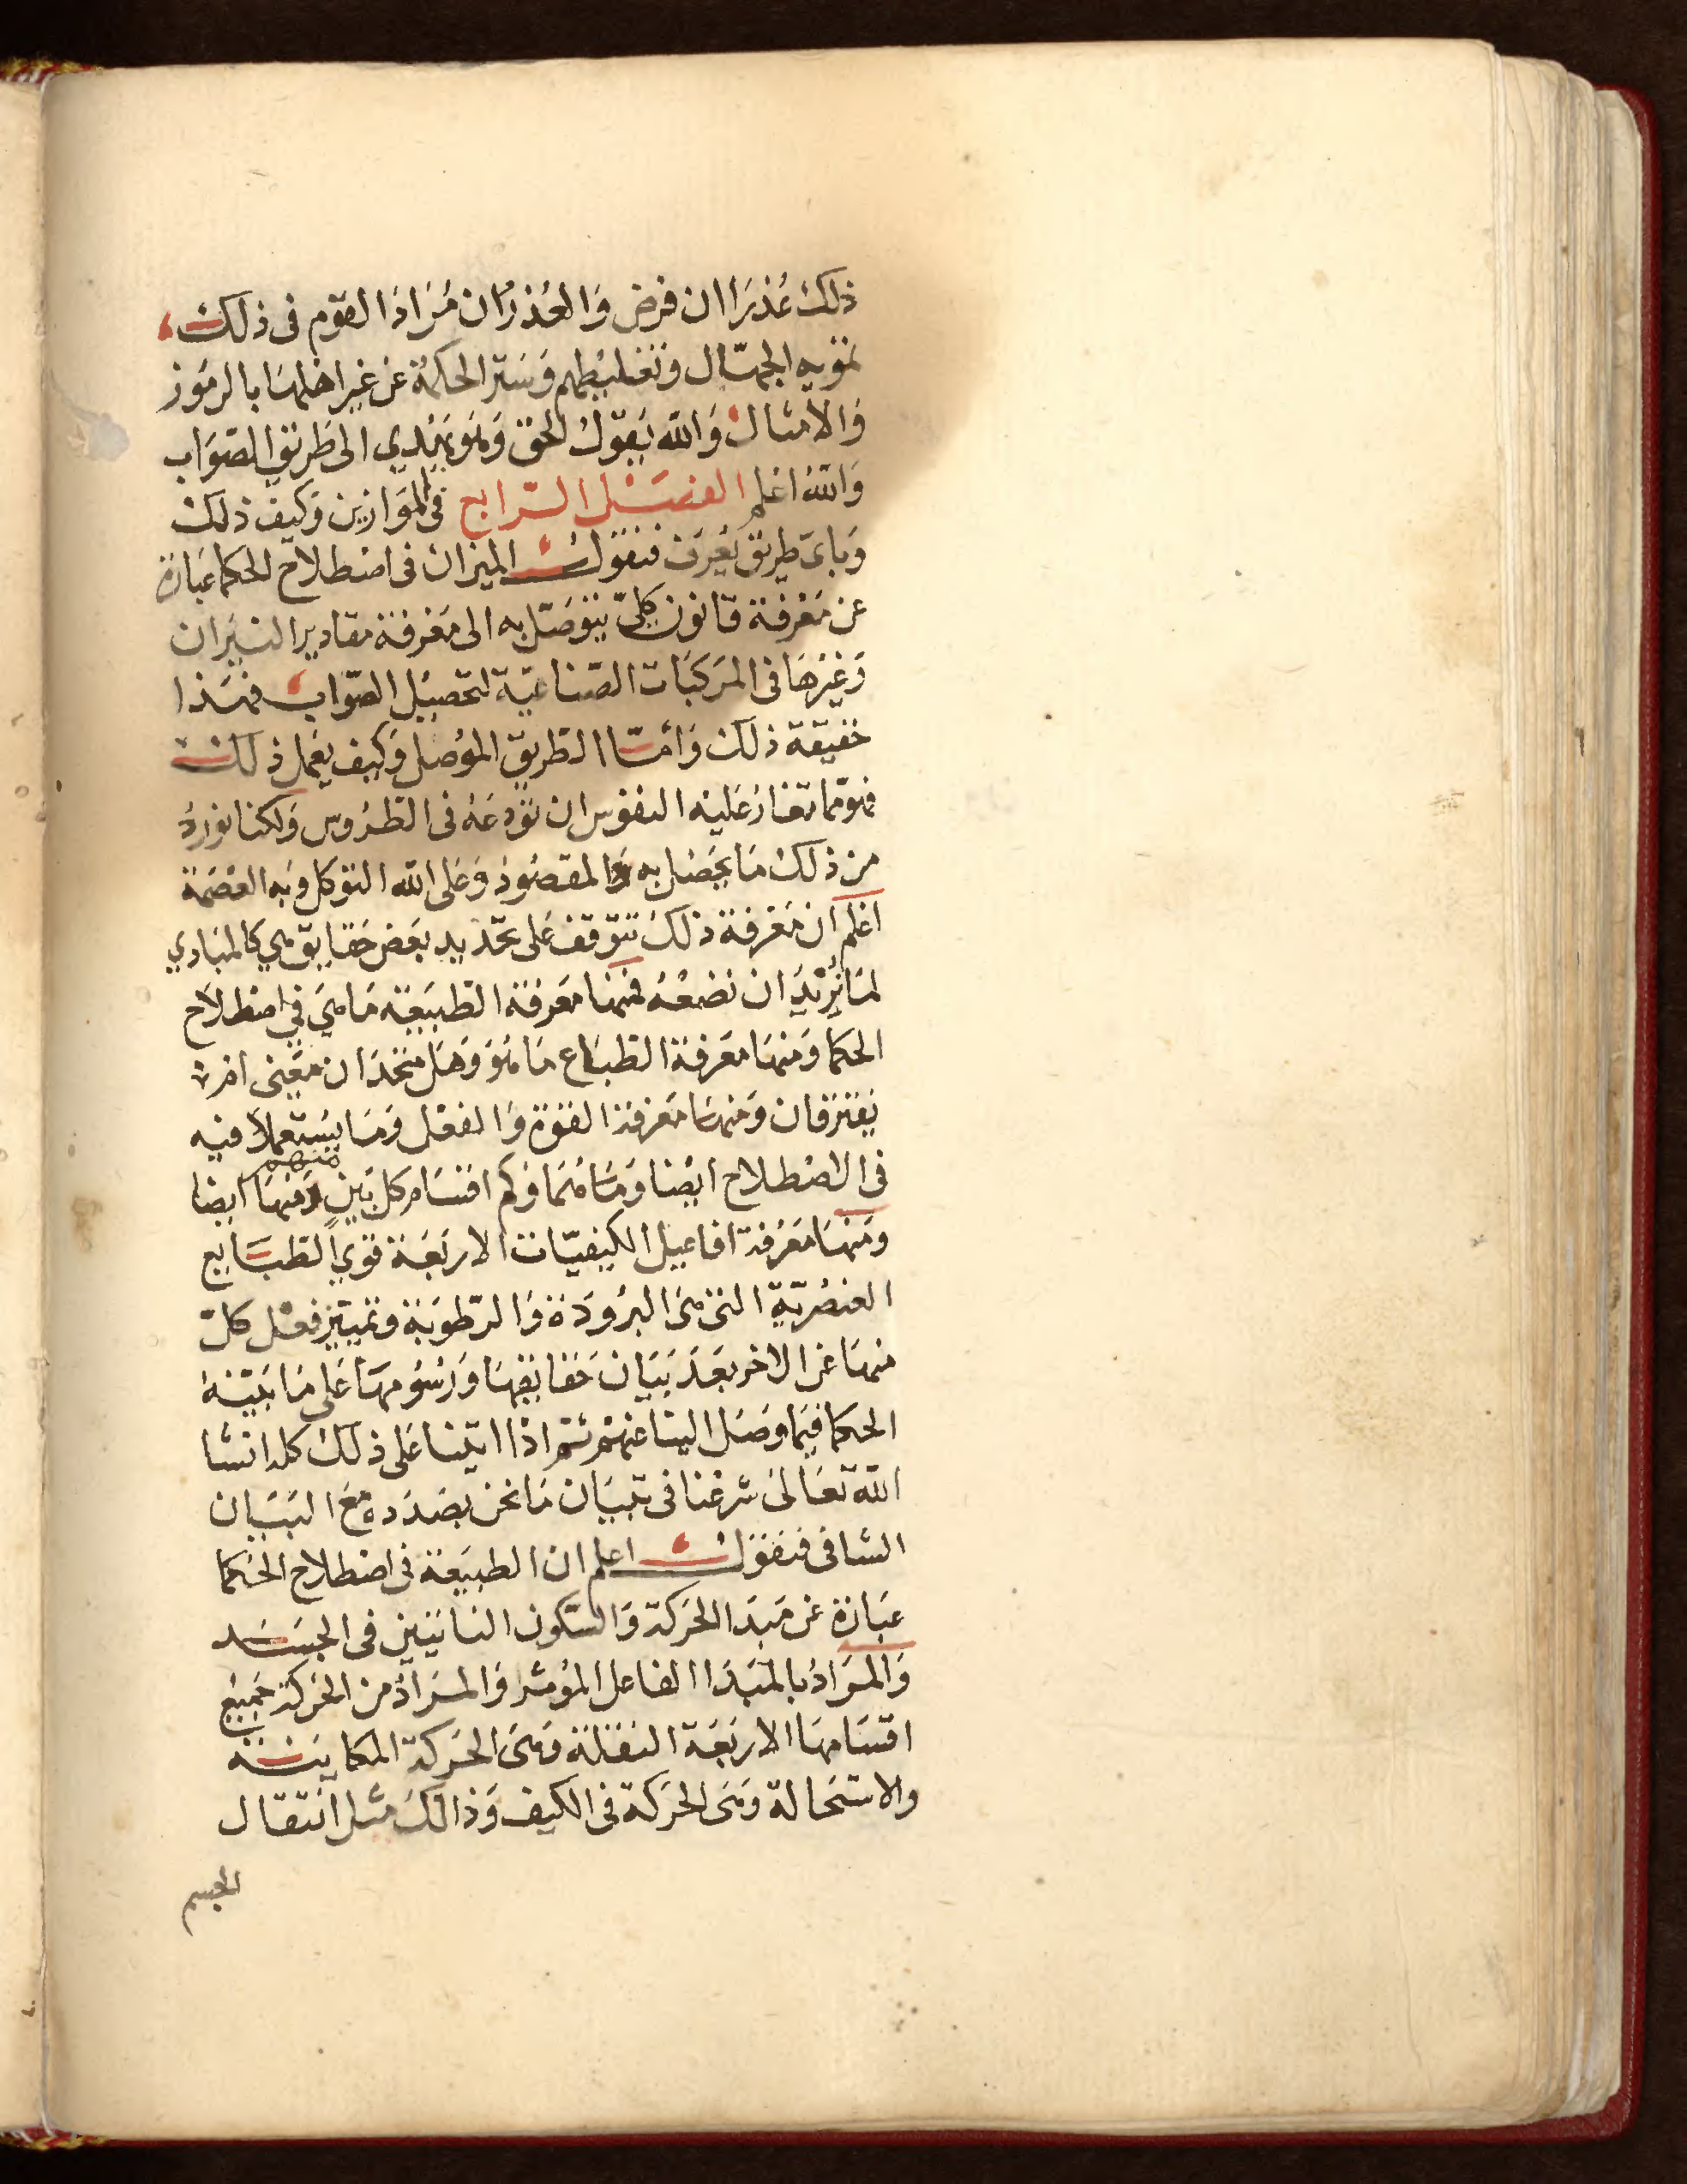 ذلك عُذرَا ان فرض وَالعُذر ان مُرَادَ القوم فى ذلك
تمويه الجهّال وتغليطهم وَسَتر الحكمة عَن غير اهلهَا بالرمُوز
وَالامثال وَالله يَقولُ الحق وَهو يَهدي الى طَريق الصَوَاب
وَالله اعلم الفصَل الرّابع فى الموَازين وَكيف ذلك
وَباى طريق يُعرَف فنقول الميزان فى اصطلاح الحكما عبَارة
عن مَعرفة قانون كلىّ يتوَصّل به الى مَعرفة مقادير النيرَان
وَغيرهَا فى المركبَات الصّناعيّة لتحصيل الصّوابِ فهَذا
حَقيقة ذلك وَامّا الطريق الموُصل وَكيف يعمَل ذلك
فهوَ مّما تغارُ عَليه النفوس ان تودعَهُ فى الطرُوس وَلكنا نورِدُ
من ذلك مَا يحَصْل به المقصُود وَعَلى الله التوكل وَبه العصَمة
اعلم ان مَعرفة ذلك تتوَقف عَلى تحديد بعَض حَقايق هي كالمبَادي
لمَا نُريدَ ان نضعْهُ فمنها مَعرفة الطبَيعَة مَا هيَ في اصطلاح
الحكما وَمنهَا مَعرفة الطبَاع مَا هوَ وَهَل متحدَان معَنى ام
يَفترَقان وَمنهَا مَعرفة القوة وَالفعْل وَمَا يسُتَعملا فيه
فى الاصْطلاح ايضا وَمَا همَا وَكم اقسَام كل بَين منهم وَمنهَا ايضا
ومنهَا مَعْرفة افاعيل الكيفيّات الاربَعَة قوي الطبَايع
العنصُريّة التى هىَ البرُودَة وَالرّطوبَة وتمييز فعْل كلّ
منهَا عَن الاخر بعَدَ بَيَان حَقايقهَا وَرُسُومهَا عَلى مَا بَيّنهُ
الحكما فيمَا وصَل الينا عَنهمُ ثم اذا اتينا عَلى ذلك كله انشا
الله تعَالىَ شرعَنا فى تبيَان مَا نحن بصَدَده مَع البَيَان
الشافى فنقولُ اعلم ان الطبيعَة فى اصْطلاح الحكَما
عبَارة عن مَبدَا الحرَكة وَالسّكون الذاتيين فى الجسَد
وَالمرَادُ بالمَبَدَا الفاعل الموُثر وَالمرَادُ من الحرَكة جَميُع
اقسَامهَا الاربَعَة النقلَة وَهىَ الحَركة المكاينَة
والاستحَالة وَهىَ الحرَكة فى الكيف وَذالك مثل انتقال
الجسم